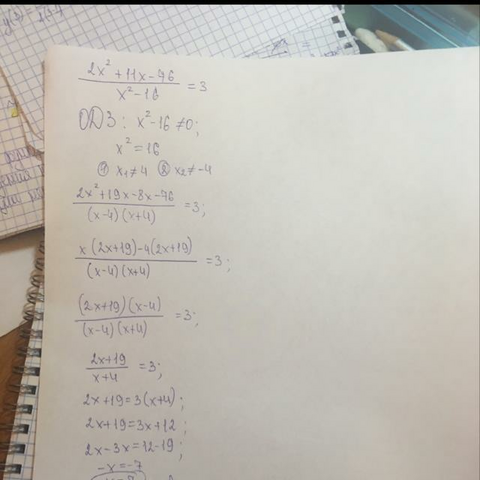 2x²+11x-76 / x²-16 = 3
ОДЗ: x²-16≠0;
x²=16
① x₁≠4 ② x₂≠-4
2x²+19x-8x-76 / (x-4)(x+4) = 3;
x(2x+19)-4(2x+19) / (x-4)(x+4) = 3;
(2x+19)(x-4) / (x-4)(x+4) = 3;
2x+19 / x+4 = 3;
2x+19=3(x+4);
2x+19=3x+12;
2x-3x=12-19;
-x=-7